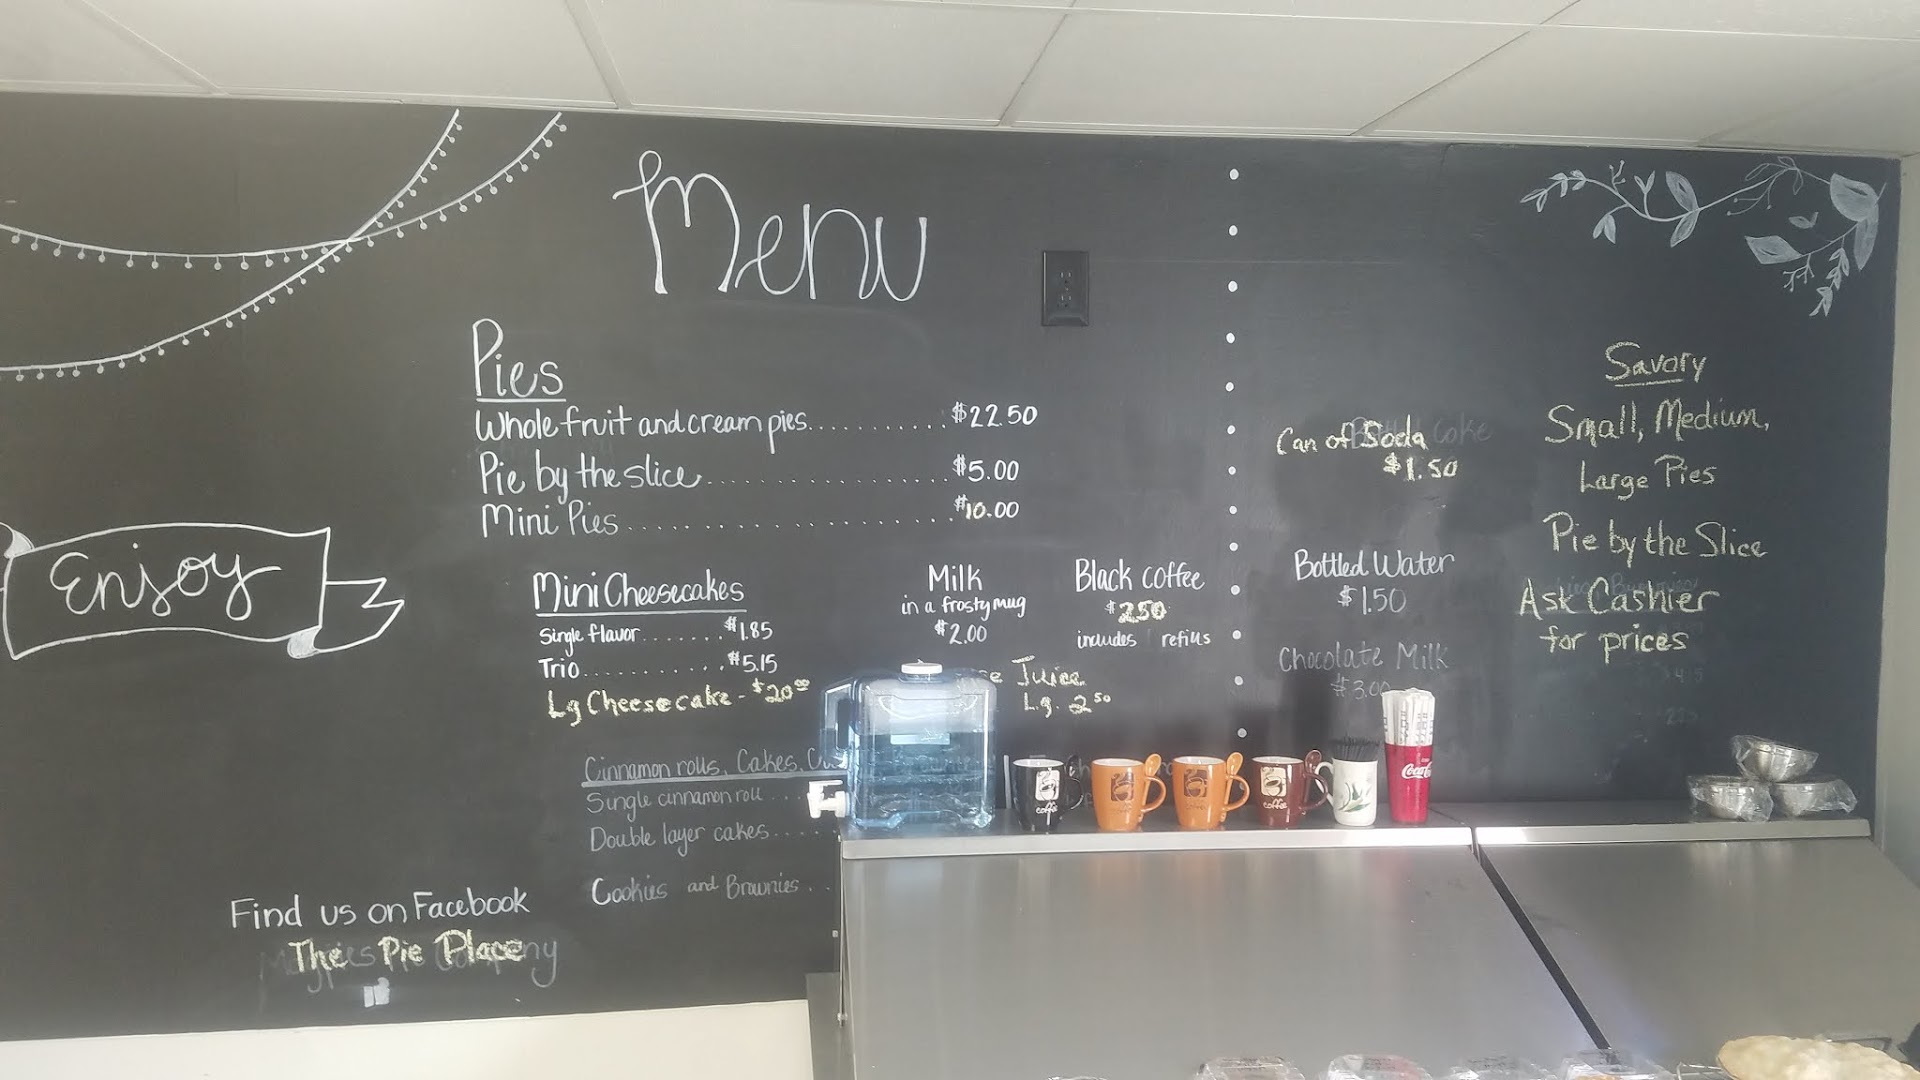 Menu
Pies
Whole fruit and cream pies.......... $22.50
Pie by the slice................... $5.00
Mini Pies........................ $10.00
Enjoy
Mini Cheesecakes
Single flavor....... $1.85
Trio............ $5.15
Lg Cheesecake - $20.00
Milk
in a frosty mug
$2.00
Black coffee
$2.50
includes refills
Juice
Lg. 2.50
Cinnamon rolls, Cakes,
Single cinnamon roll....
Double layer cakes.....
Cookies and Brownies..
Can of Soda
$1.50
Bottled Water
$1.50
Chocolate Milk
$3.00
Savory
Small, Medium,
Large Pies
Pie by the Slice
Ask Cashier
for prices
Find us on Facebook
The Pie Place
coffee
coffee